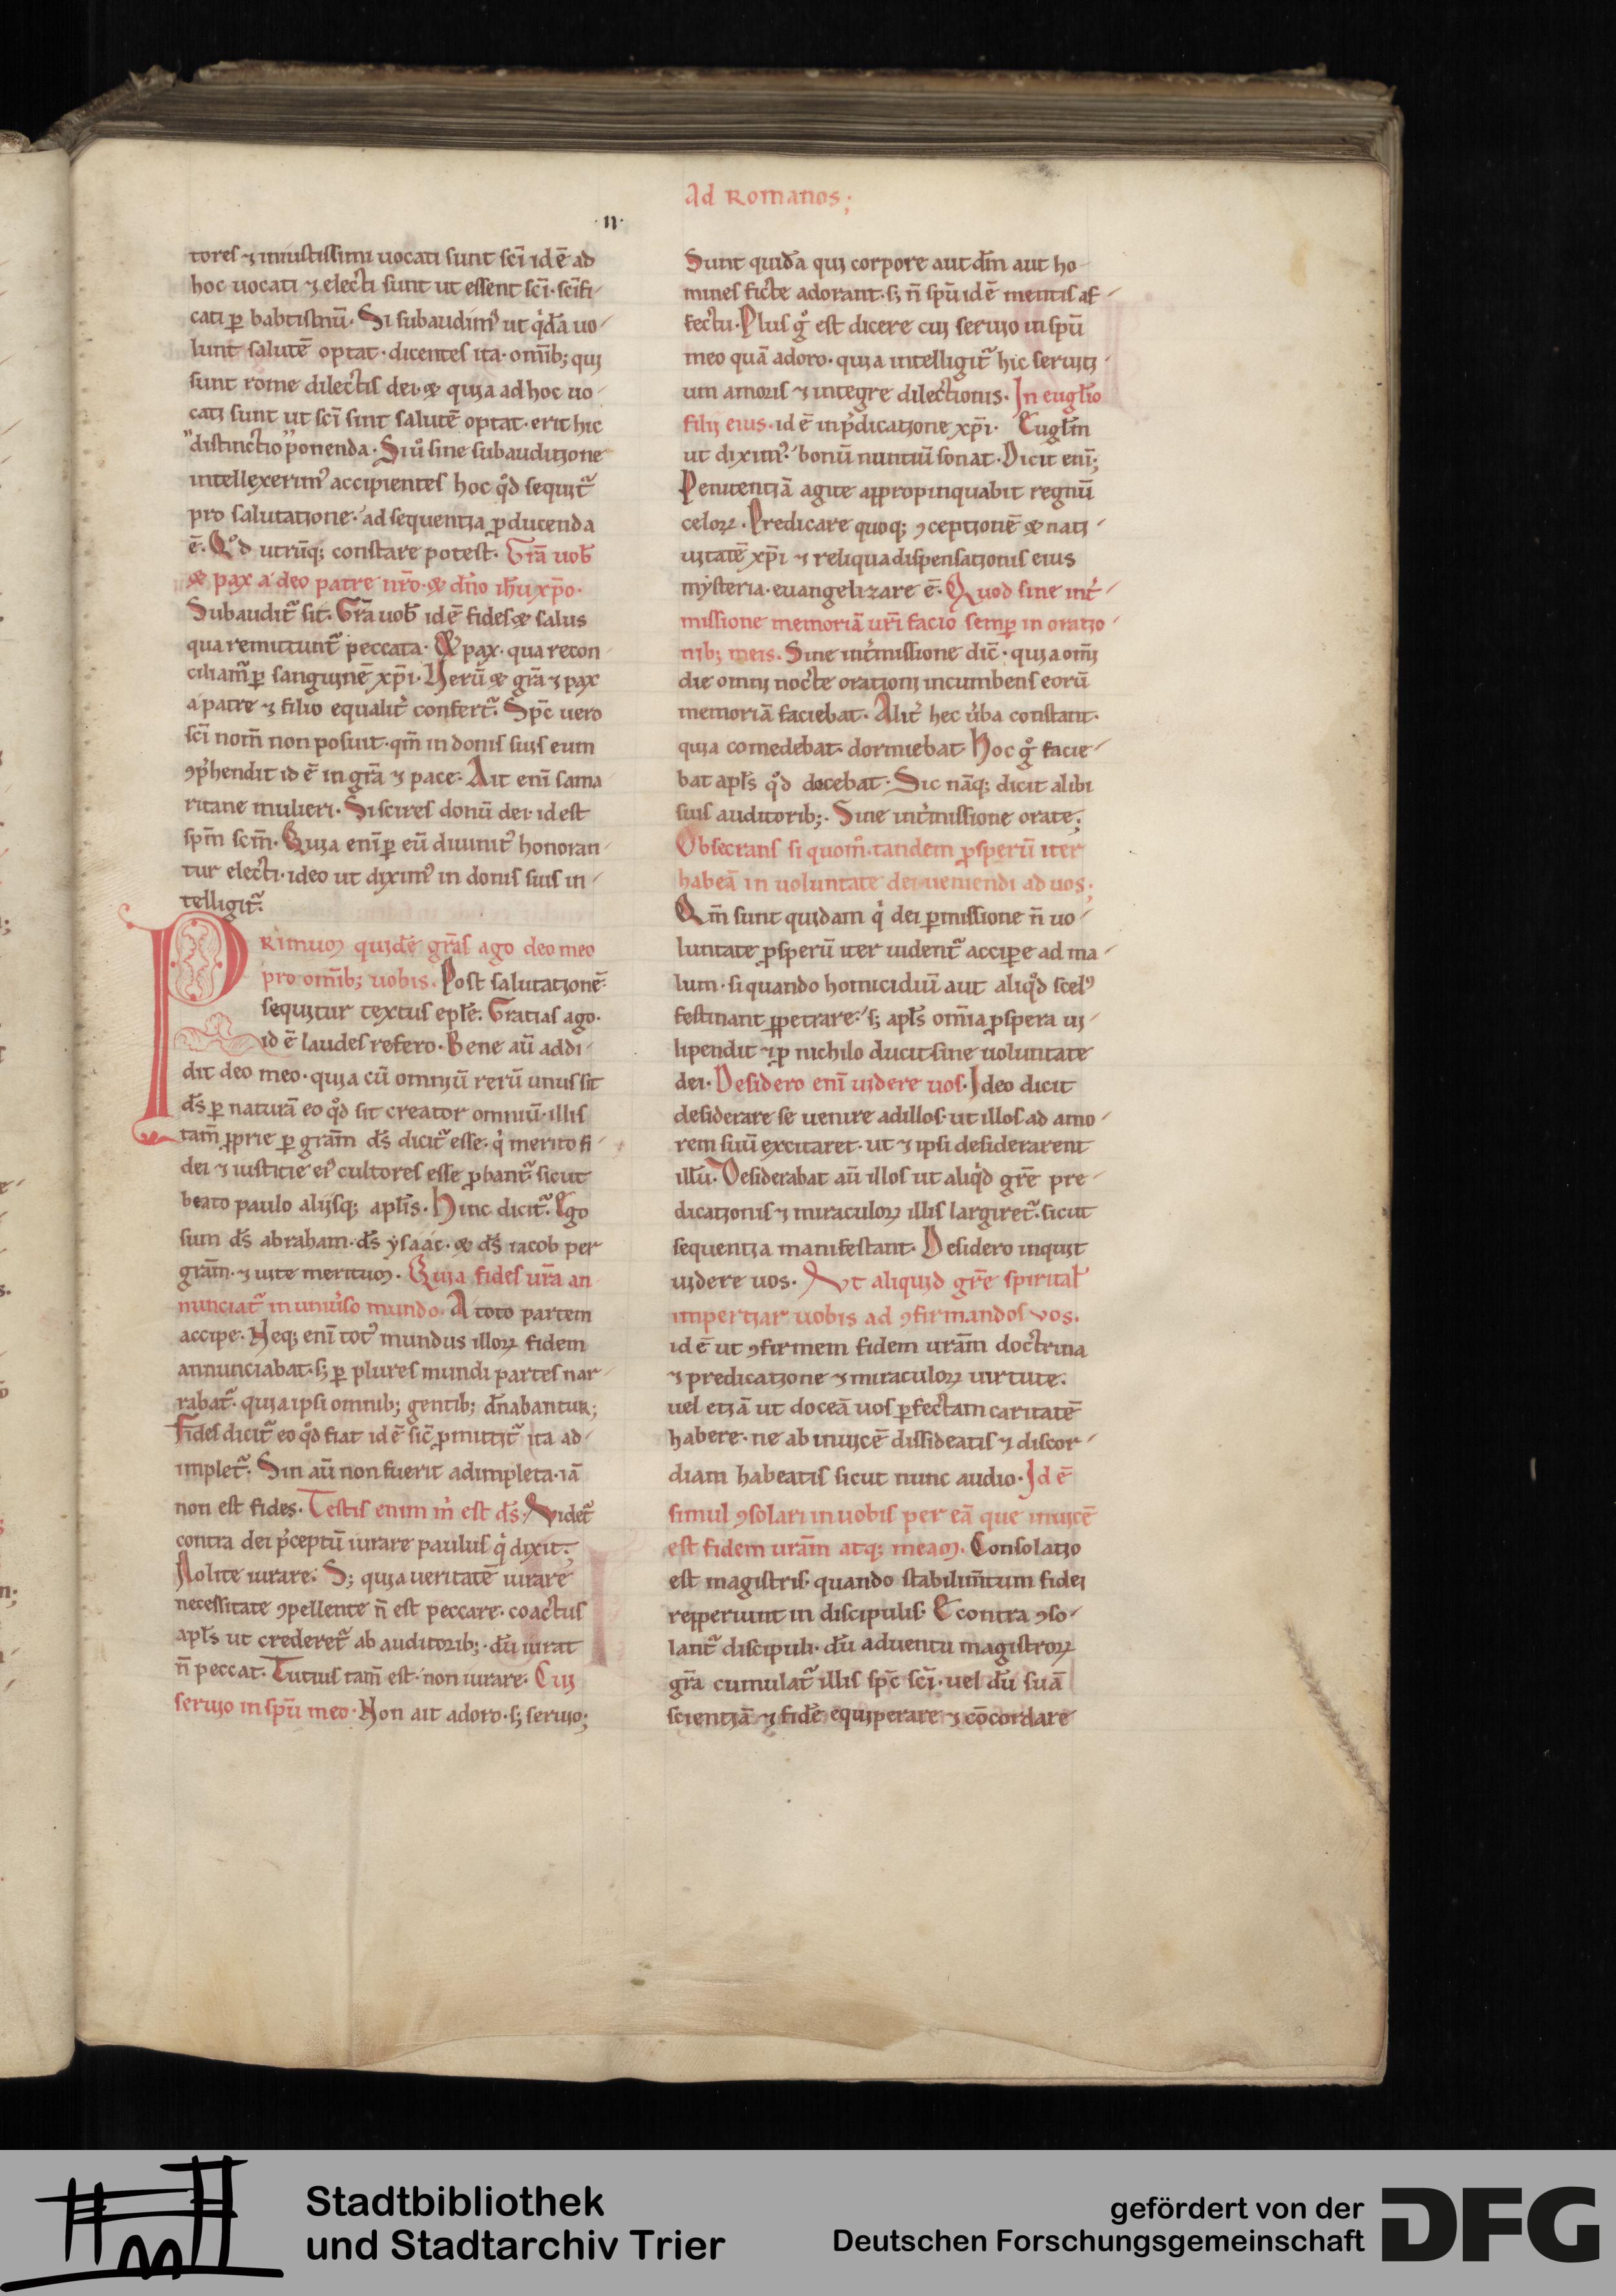 Ad Romanos;
.II.
tores ⁊ iniustissimi uocati sunt sc̄i id ē ad
hoc uocati ⁊ electi sunt ut essent sc̄i. sc̄ifi
cati ꝑ babtismū. Si subaudim᷒ ut q̇dā uo
lunt salutē optat. dicentes ita. om̄ib; qui
sunt rome dilectis dei. & quia ad hoc uo
cati sunt ut sc̄i sint salutē optat. erit hic
distinctio ponenda. Si ů sine subauditione
intellexerim᷒ accipientes hoc qd̊ sequit᷑
pro salutatione. ad sequentia ꝓducenda
ē. Qd̊ utrūq; constare potest. Gr̄a uob̄
& pax a deo patre nr̄o. & dn̄o ih̄u xp̄o.
Subaudit᷑ sit. Gr̄a uob̄ id ē fides & salus
qua remittunt᷑ peccata. & pax. qua recon
ciliam᷑ ꝑ sanguinē xp̄i. Verū & gr̄a ⁊ pax
a patre ⁊ filio equalit̄ confert᷑. Sp̄c uero
sc̄i nom̄ non posuit. qm̄ in donis suis eum
ꝯp̄hendit id ē in gr̄a ⁊ pace. Ait enī sama
ritane mulieri. Si scires donū dei. id est
spm̄ scm̄. Quia enī ꝑ eū diuinit᷒ honoran
tur electi. ideo ut dixim᷒ in donis suis in
telligit᷑.
PRimum quidē gr̄as ago deo meo
pro om̄ib; uobis. Post salutationē
sequitur textus epl̄e. Gratias ago.
id ē laudes refero. Bene aū addi
dit deo meo. quia cū omniū rerū unus sit
ds̄ ꝑ naturā eo qd̊ sit creator omniū. illis
tam̄ ꝓprie ꝑ gr̄am ds̄ dicit᷑ esse. q̇ merito fi
dei ⁊ iusticie ei᷒ cultores esse ꝓbant᷑. sicut
beato paulo aliisq; apl̄is. Hinc dicit᷑. Ego
sum ds̄ abraham. ds̄ ysaac. & ds̄ iacob per
gr̄am. ⁊ uite meritum. Quia fides ur̄a an
nunciat᷑ in uniu̓so mundo. A toto partem
accipe. Neq; enī tot᷒ mundus illoꝝ fidem
annunciabat. s; ꝑ plures mundi partes nar
rabat᷑. quia ipsi omnib; gentib; dn̄abantur;
Fides dicit᷑ eo qd̊ fiat id ē sic̄ ꝓmittit᷑ ita ad
implet᷑. Sin aū non fuerit adimpleta. iā
non est fides. Testis enim m̓ est ds̄. Videt᷑
contra dei p̄ceptū iurare paulus q̇ dixit.
Nolite iurare. S; quia ueritatē iurare
necessitate ꝯpellente n̄ est peccare. coactus
apl̄s ut crederet᷑ ab auditorib;. dū iurat
n̄ peccat. Tutius tam̄ est. non iurare. Cui
seruio in spū meo. Non ait adoro. s; seruio;
Sunt quidā qui corpore aut dm̄ aut ho
mines ficte adorant. s; n̄ spū id ē mentis af
fectu. Plus g̊ est dicere cui seruio in spū
meo quā adoro. quia intelligit᷑ hic seruiti
um amoris ⁊ integre dilectionis. In eugl̄io
filii eius. id ē in p̄dicatione xp̄i. Eugl̄m
ut dixim᷒. bonū nuntiū sonat. Dicit enī;
Penitentiā agite appropinquabit regnū
celoꝝ. Predicare quoq; ꝯceptionē & nati
uitatē xp̄i ⁊ reliqua dispensationis eius
mysteria. euangelizare ē. Quod sine int̓
missione memoriā ur̄i facio semꝑ in oratio
nib; meis. Sine int̓missione dic̄. quia omni
die omni nocte orationi incumbens eorū
memoriā faciebat. Alit̓ hec u̓ba constant.
quia comedebat. dormiebat. Hoc g̊ facie
bat apl̄s qd̊ docebat. Sic nāq; dicit alibi
suis auditorib;. Sine int̓missione orate;
Obsecrans si quom̊. tandem ꝓsperū iter
habeā in uoluntate dei ueniendi ad uos;
Qm̄ sunt quidam q̇ dei ꝑmissione n̄ uo
luntate ꝓsperū iter uident᷑ accipe ad ma
lum. si quando homicidiū aut aliqd̊ scel᷒
festinant ꝑpetrare. s; apl̄s om̄ia ꝓspera ui
lipendit ⁊ ꝓ nichilo ducit sine uoluntate
dei. Desidero enī uidere uos. Ideo dicit
desiderare se uenire ad illos. ut illos ad amo
rem suū excitaret. ut ⁊ ipsi desiderarent
illū. Desiderabat aū illos ut aliqḋ gr̄e pre
dicationis ⁊ miraculoꝝ illis largiret᷑. sicut
sequentia manifestant. Desidero inquit
uidere uos. Vt aliquid gr̄e spiritał
impertiar uobis ad ꝯfirmandos vos.
id ē ut ꝯfirmem fidem ur̄am doctrina
⁊ predicatione ⁊ miraculoꝝ uirtute.
uel etiā ut doceā uos ꝑfectam caritatē
habere. ne ab inuicē dissideatis ⁊ discor
diam habeatis sicut nunc audio. Id ē
simul ꝯsolari in uobis per eā que inuicē
est fidem ur̄am atq; meam. Consolatio
est magistris. quando stabilim̄tum fidei
repperiunt in discipulis. E contra ꝯso
lant᷑ discipuli. dū aduentu magistroꝝ
gr̄a cumulat᷑ illis sp̄c sc̄i. uel dū suā
scientiā ⁊ fidē equiperare ⁊ cōcordare
Stadtbibliothek
und Stadtarchiv Trier
gefördert von der
Deutschen Forschungsgemeinschaft
DFG